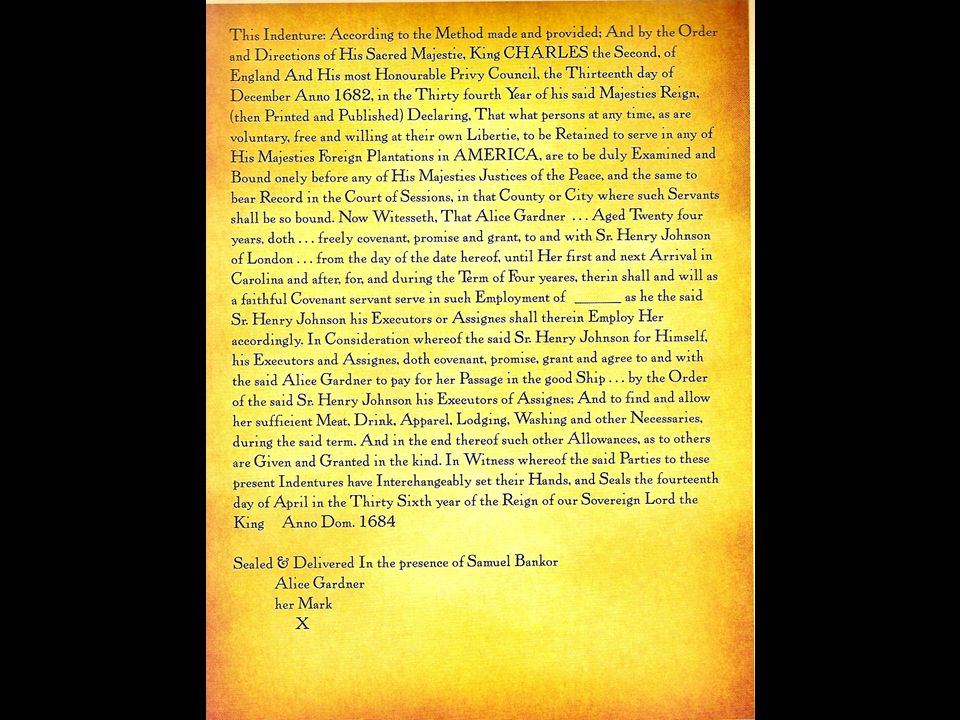 This Indenture: According to the Method made and provided; And by the Order
and Directions of His Sacred Majestie, King CHARLES the Second, of
England And His most Honourable Privy Council, the Thirteenth day of
December Anno 1682, in the Thirty fourth Year of his said Majesties Reign,
(then Printed and Published) Declaring, That what persons at any time, as are
voluntary, free and willing at their own Libertie, to be Retained to serve in any of
His Majesties Foreign Plantations in AMERICA, are to be duly Examined and
Bound onely before any of His Majesties Justices of the Peace, and the same to
bear Record in the Court of Sessions, in that County or City where such Servants
shall be so bound. Now Witesseth, That Alice Gardner . . . Aged Twenty four
years, doth . . . freely covenant, promise and grant, to and with Sr. Henry Johnson
of London . . . from the day of the date hereof, until Her first and next Arrival in
Carolina and after, for, and during the Term of Four yeares, therin shall and will as
a faithful Covenant servant serve in such Employment of ______ as he the said
Sr. Henry Johnson his Executors or Assignes shall therein Employ Her
accordingly. In Consideration whereof the said Sr. Henry Johnson for Himself,
his Executors and Assignes, doth covenant, promise, grant and agree to and with
the said Alice Gardner to pay for her Passage in the good Ship . . . by the Order
of the said Sr. Henry Johnson his Executors of Assignes; And to find and allow
her sufficient Meat, Drink, Apparel, Lodging, Washing and other Necessaries,
during the said term. And in the end thereof such other Allowances, as to others
are Given and Granted in the kind. In Witness whereof the said Parties to these
present Indentures have Interchangeably set their Hands, and Seals the fourteenth
day of April in the Thirty Sixth year of the Reign of our Sovereign Lord the
King Anno Dom. 1684
Sealed & Delivered In the presence of Samuel Bankor
Alice Gardner
her Mark
X